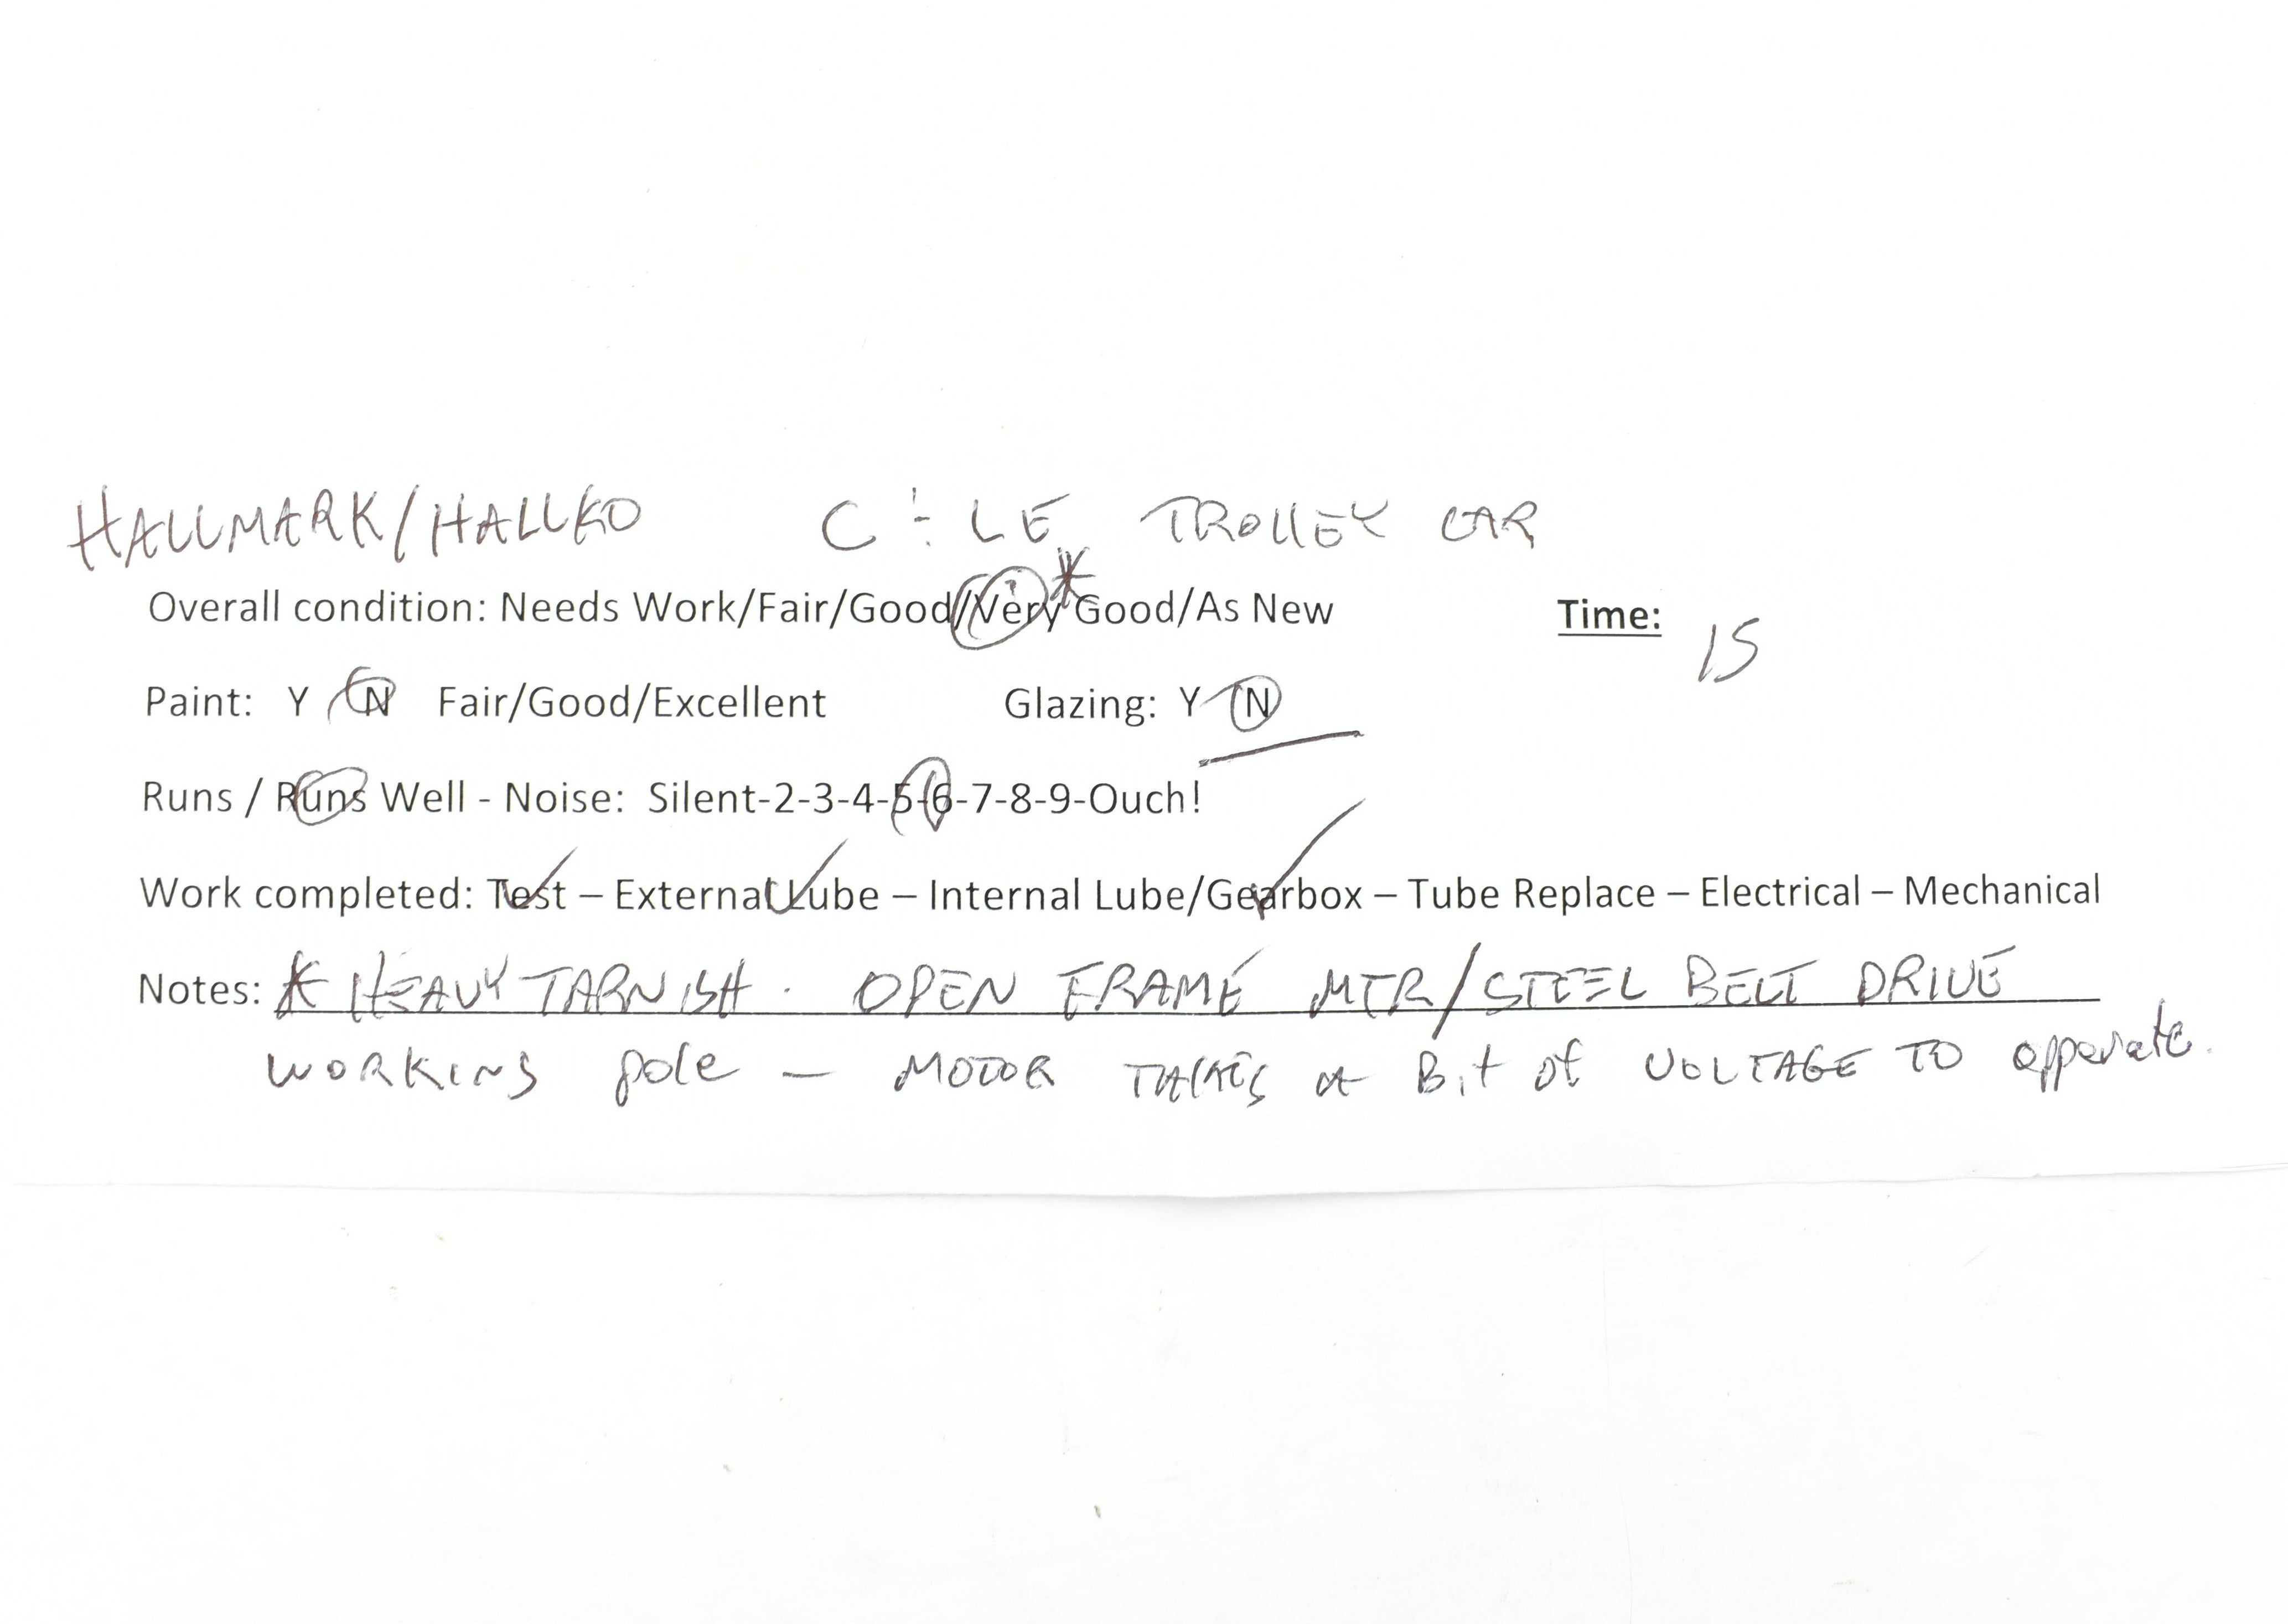 HALLMARK/HALLKO C & LE TROLLEY CAR
Overall condition: Needs Work/Fair/Good/Very*Good/As New Time: 15
Paint: Y N Fair/Good/Excellent Glazing: Y N
Runs / Runs Well - Noise: Silent-2-3-4-5-6-7-8-9-Ouch!
Work completed: Test – External Lube – Internal Lube/Gearbox – Tube Replace – Electrical – Mechanical
Notes: * HEAVY TARNISH. OPEN FRAME MTR/STEEL BELT DRIVE
WORKING pole — MOTOR TAKES A Bit of VOLTAGE TO opperate.